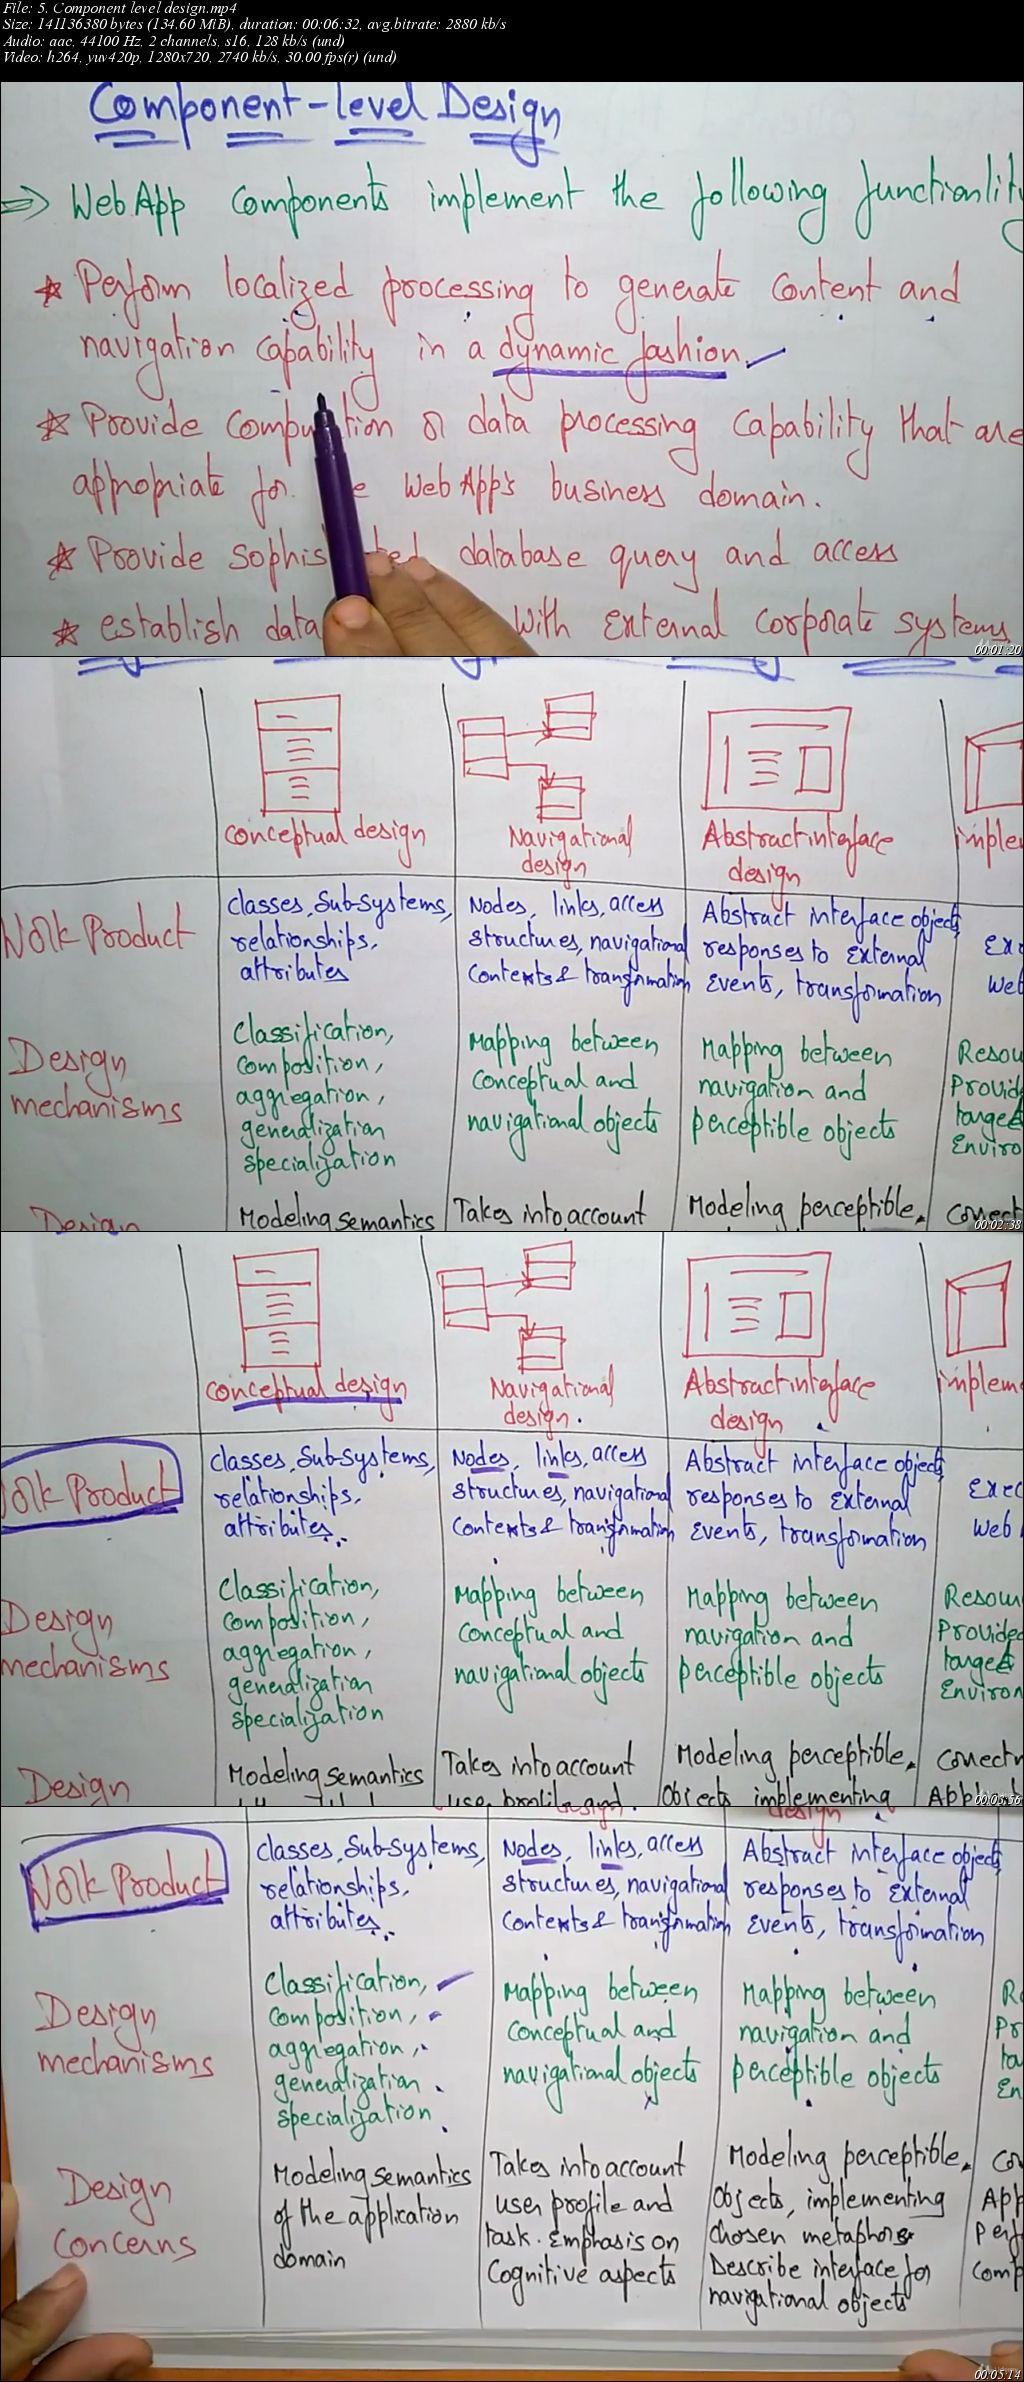 File: 5. Component level design.mp4
Size: 141136380 bytes (134.60 MiB), duration: 00:06:32, avg.bitrate: 2880 kb/s
Audio: aac, 44100 Hz, 2 channels, s16, 128 kb/s (und)
Video: h264, yuv420p, 1280x720, 2740 kb/s, 30.00 fps(r) (und)
Component-level Design
⇒ WebApp components implement the following functionlity
* Perform localized processing to generate content and
navigation capability in a dynamic fashion.
* Provide or data processing capability that are
appropriate for WebApp's business domain.
* Provide database query and access
* establish data with External corporate systems
00:01:20
conceptual design
Navigational
design
Abstract interface
design
Work Product
classes, Sub-Systems,
relationships,
attributes
Nodes, links, access
structures, navigational
Contexts & transformation
Abstract interface objects
responses to External
Events, transformation
Web
Design
mechanisms
Classification,
composition,
aggregation,
generalization
specialization
Mapping between
conceptual and
navigational objects
Mapping between
navigation and
perceptible objects
Design
Modeling semantics
Takes into account
Modeling perceptible
00:02:38
conceptual design
Navigational
design.
Abstract interface
design
Work Product
classes, Sub-Systems,
relationships,
attributes
Nodes, links, access
structures, navigational
Contexts & transformation
Abstract interface object
responses to External
Events, transformation
Web
Design
mechanisms
Classification,
composition,
aggregation,
generalization
specialization
Mapping between
conceptual and
navigational objects
Mapping between
navigation and
perceptible objects
Provided
target
Design
Modeling semantics
Takes into account
Modeling perceptible
Objects implementing
00:03:56
design.
design
Work Product
classes, Sub-Systems,
relationships,
attributes
Nodes, links, access
structures, navigational
Contexts & transformation
Abstract interface objects
responses to External
Events, transformation
Design
mechanisms
Classification,
composition,
aggregation,
generalization
specialization
Mapping between
conceptual and
navigational objects
Mapping between
navigation and
perceptible objects
Design
concerns
Modeling semantics
of the application
domain
Takes into account
user profile and
task. Emphasis on
Cognitive aspects
Modeling perceptible
Objects, implementing
chosen metaphors
Describe interface for
navigational objects
00:05:14